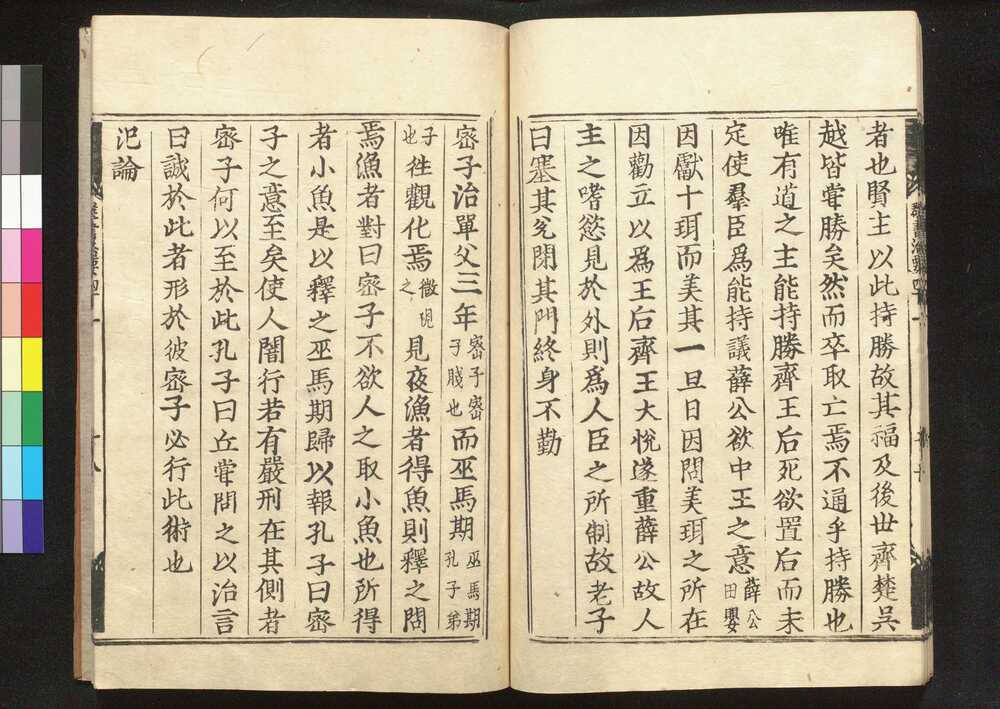 者也賢主以此持勝故其福及後世齊楚吳
越皆甞勝矣然而卒取亡焉不通乎持勝也
唯有道之主能持勝齊王后死欲置后而未
定使羣臣爲能持議薛公欲中王之意薛公田嬰
因獻十珥而美其一旦日因問美珥之所在
因勸立以爲王后齊王大悅遂重薛公故人
主之嗜慾見於外則爲人臣之所制故老子
曰塞其兊閉其門終身不勤
宻子治單父三年宻子宻子賤也而巫馬期巫馬期孔子弟
子也徃觀化焉微視之見夜漁者得魚則釋之問
焉漁者對曰宻子不欲人之取小魚也所得
者小魚是以釋之巫馬期歸以報孔子曰宻
子之意至矣使人闇行若有嚴刑在其側者
宻子何以至於此孔子曰丘甞問之以治言
曰誠於此者形於彼宻子必行此術也
氾論